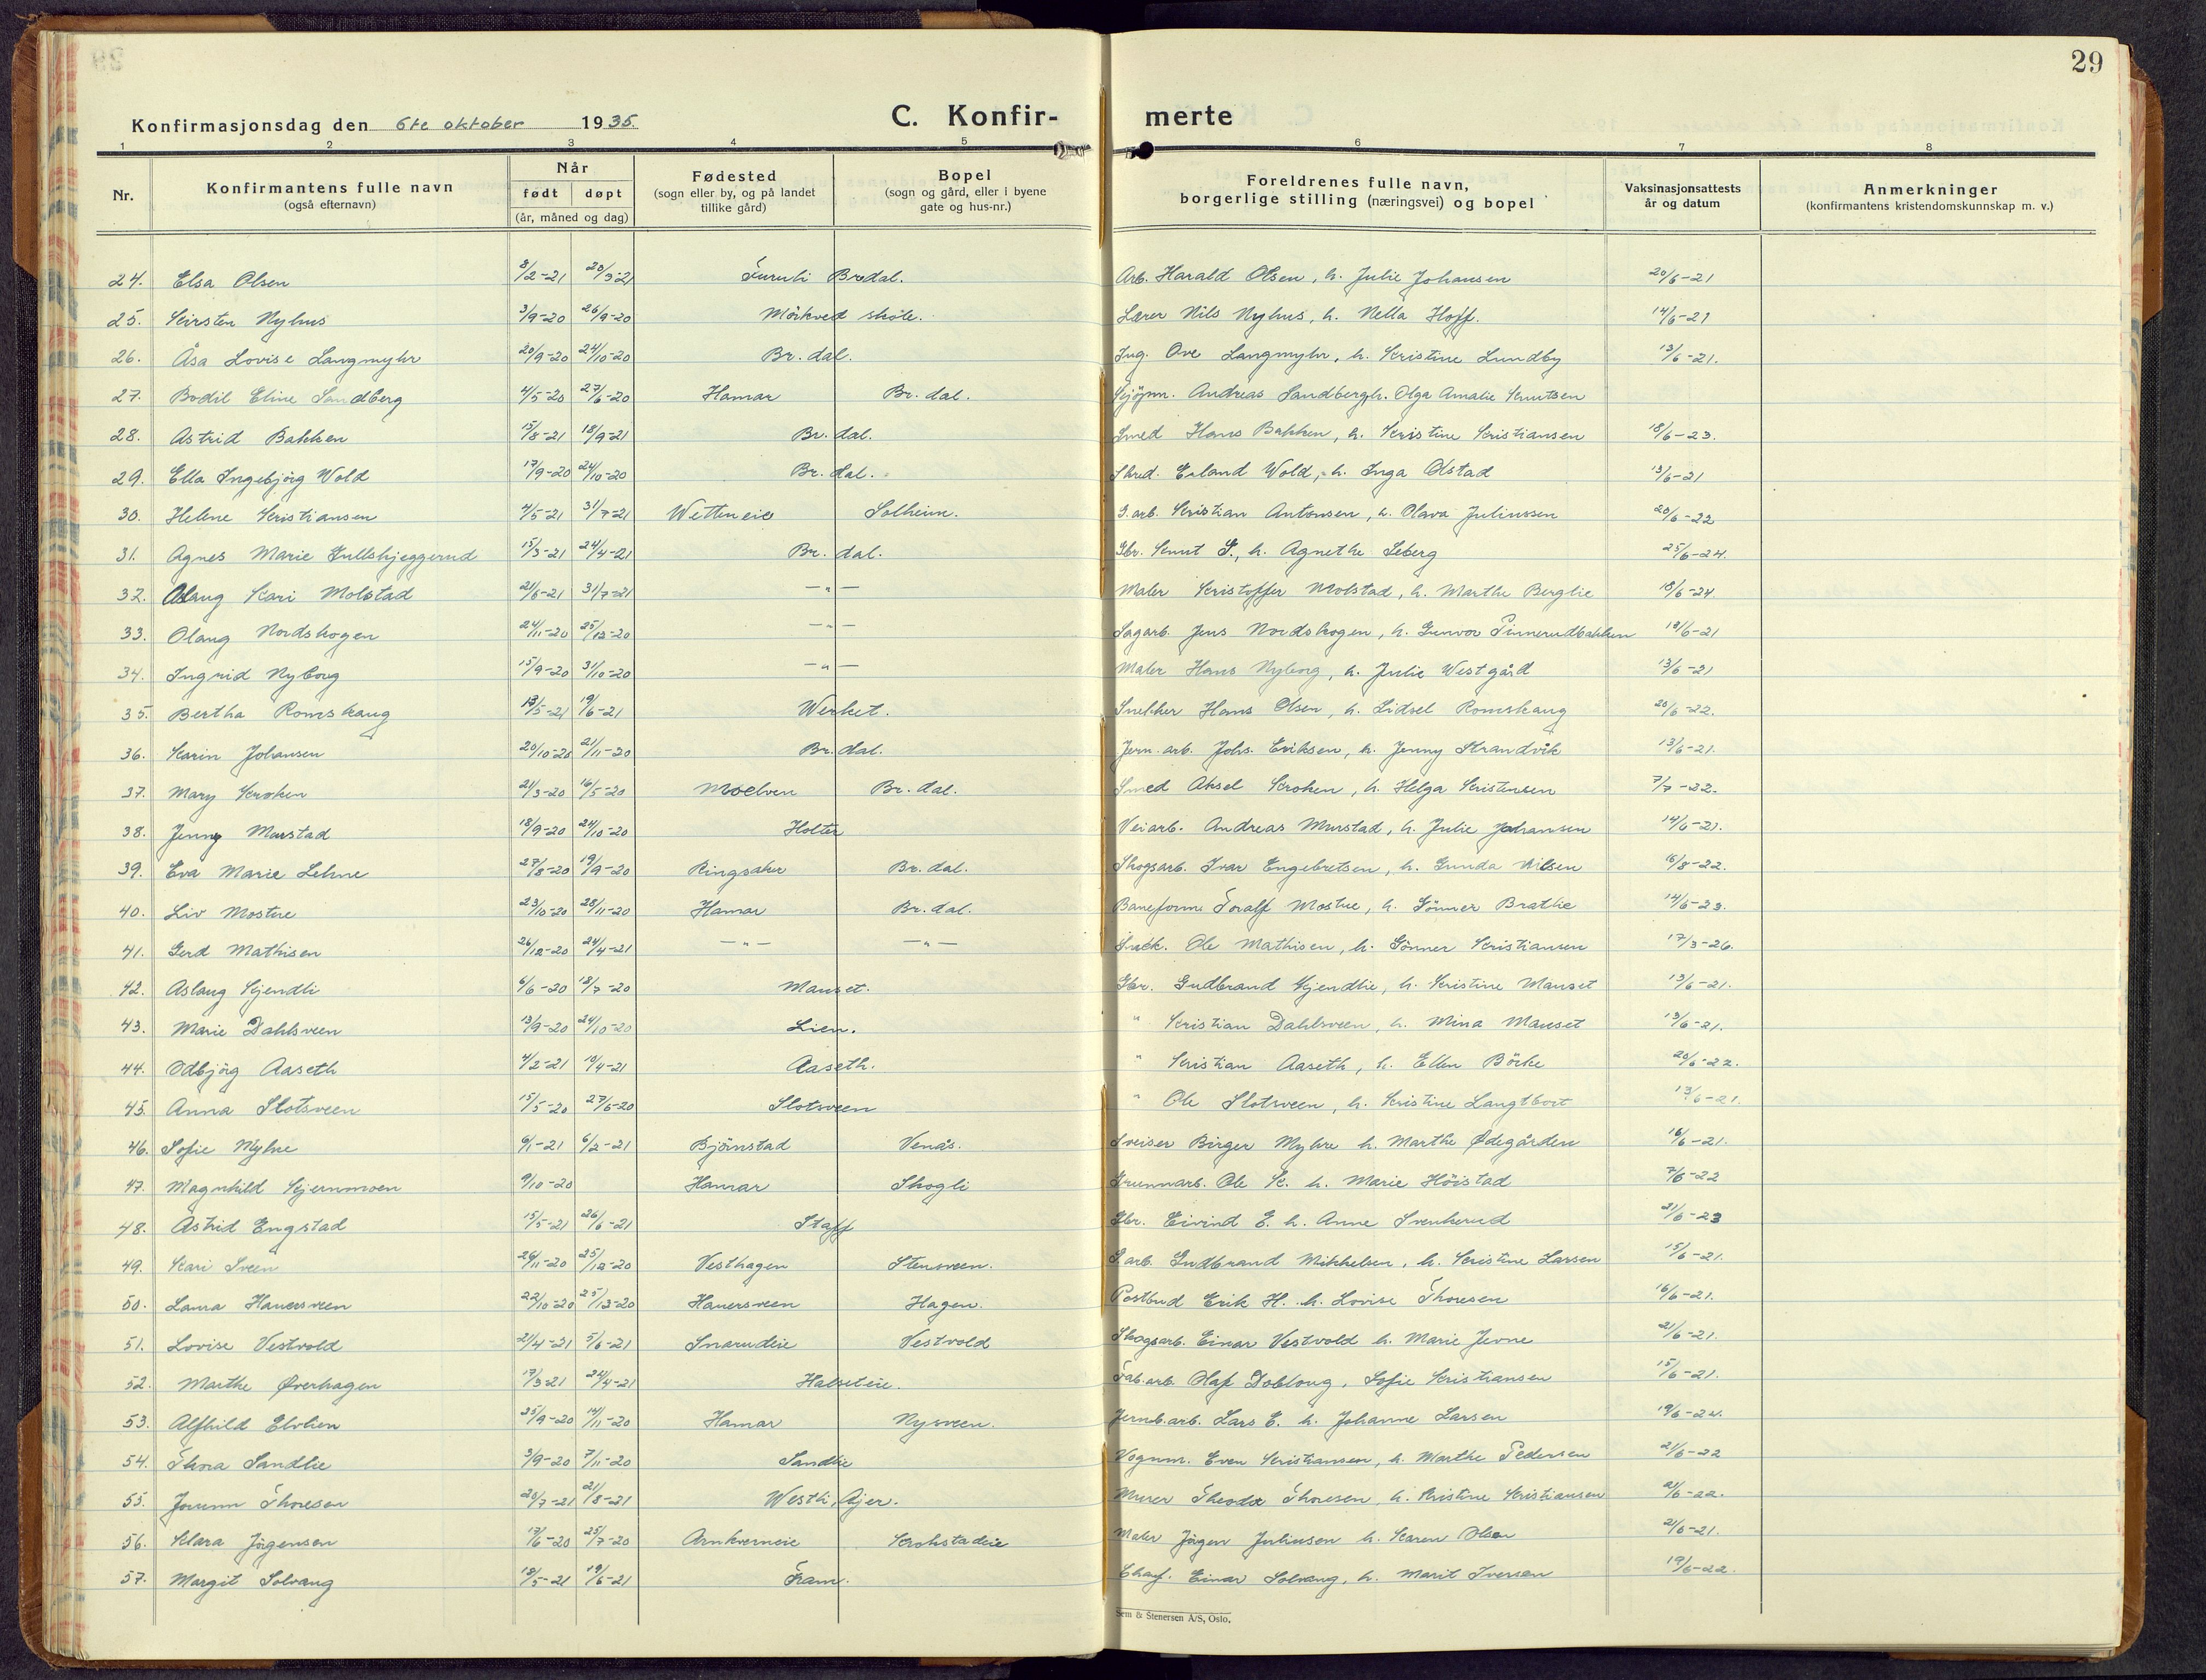 29
Konfirmasjonsdag den 6te oktober 1935.
C. Konfir- merte
1 2 3 4 5 6 7 8
Nr. Konfirmantens fulle navn (også efternavn) Når født døpt (år, måned og dag) Fødested (sogn eller by, og på landet tillike gård) Bopel (sogn og gård, eller i byene gate og hus-nr.) Foreldrenes fulle navn, borgerlige stilling (næringsvei) og bopel Vaksinasjonsattests år og datum Anmerkninger (konfirmantens kristendomskunnskap m. v.)
24. Elsa Olsen 8/2-21 20/3-21 Furuli Brdal. Arb. Harald Olsen, h. Julie Johansen 20/6-21
25. Kirsten Nyhus 3/9-20 26/9-20 Mörkved skole. Lærer Nils Nyhus, h. Nella Hoff. 14/6-21
26. Åsa Lovise Langmyhr 20/9-20 24/10-20 Br. dal. Ing. Ove Langmyhr, h. Kristine Lundby 13/6-21.
27. Bodil Eline Sandberg 4/5-20 27/6-20 Hamar Br. dal. Kjöpm. Andreas Sandberg, h. Olga Amalie Knutsen
28. Astrid Bakken 15/8-21 18/9-21 Br. dal. Smed Hans Bakken, h. Kristine Kristiansen 18/6-23.
29. Ella Ingebjörg Wold 17/9-20 24/10-20 Br. dal. Skred. Erland Wold, h. Inga Olstad 13/6-21
30. Helene Kristiansen 4/5-21 31/7-21 Wetteneie Solheim. G. arb. Kristian Antonsen, h. Olava Juliussen 20/6-22
31. Agnes Marie Gullskjeggerud 15/3-21 24/4-21 Br. dal. Gbr. Knut G., h. Agnethe Seberg 25/6-24.
32. Aslaug Kari Molstad 21/6-21 31/7-21 —"— Maler Kristoffer Molstad, h. Marthe Berglie 18/6-24.
33. Olaug Nordskogen 24/11-20 25/12-20 —"— Sagarb. Jens Nordskogen, h. Gunvor Pinnerudbakken 13/6-21
34. Ingrid Nyborg 15/9-20 31/10-20 —"— Maler Hans Nyborg, h. Julie Westgård 13/6-21
35. Bertha Romskaug 13/5-21 19/6-21 Werket. Snekker Hans Olsen, h. Lidsel Romskaug 20/6-22.
36. Karin Johansen 20/10-20 21/11-20 Br. dal. Jern. arb. Johs. Eriksen, h. Jenny Strandvik 13/6-21.
37. Mary Kroken 21/3-20 16/5-20 Moelven Br. dal. Smed Aksel Kroken, h. Helga Kristensen 7/7-22.
38. Jenny Murstad 18/9-20 24/10-20 Holter Veiarb. Andreas Murstad, h. Julie Johansen 14/6-21.
39. Eva Marie Lehne 27/8-20 19/9-20 Ringsaker Br. dal. Skogsarb. Ivar Engebretsen, h. Gunda Nilsen 16/8-22.
40. Liv Mostue 23/10-20 28/11-20 Hamar Br. dal. Baneform. Toralf Mostue, h. Gönner Brathie 14/6-23.
41. Gerd Mathisen 26/12-20 24/4-21 —"— —"— Snek. Ole Mathisen, h. Gönner Kristiansen 17/3-26.
42. Aslaug Kjendli 6/6-20 18/7-20 Mauset. Gbr. Gudbrand Kjendlie, h. Kristine Mauset 13/6-21.
43. Marie Dahlsveen 13/9-20 24/10-20 Lien. " Kristian Dahlsveen, h. Mina Mauset 13/6-21.
44. Odbjörg Aaseth 4/2-21 10/4-21 Aaseth. " Kristian Aaseth, h. Ellen Börke 20/6-22.
45. Anna Slotsveen 15/5-20 27/6-20 Slotsveen " Ole Slotsveen, h. Kristine Langtbort 13/6-21.
46. Sofie Myhre 6/1-21 6/2-21 Björnstad Venås. Sveiser Birger Myhre h. Marthe Ødegården 16/6-21.
47. Magnhild Kjernmoen 9/10-20 Hamar Skogli Grunnarb. Ole K. h. Marie Höistad 7/6-22
48. Astrid Engstad 15/5-21 26/6-21 Staff Gbr. Eivind E. h. Anne Svenkerud 21/6-23
49. Kari Sveen 26/11-20 25/12-20 Vesthagen Stensveen. G. arb. Gudbrand Mikkelsen, h. Kristine Larsen 15/6-21.
50. Laura Hauersveen 22/10-20 25/12-20 Hauersveen Hagen. Postbud Erik H. h. Lovise Thoresen 16/6-21.
51. Lovise Vestvold 21/4-21 5/6-21 Snarudeie Vestvold Skogsarb. Einar Vestvold h. Marie Jevne 21/6-21.
52. Marthe Øverhagen 17/3-21 24/4-21 Halseteie. Fab. arb. Olaf Dobloug, Sofie Kristiansen 15/6-21.
53. Alfhild Elvlien 25/9-20 14/11-20 Hamar Nysveen. Jernb. arb. Lars E. h. Johanne Larsen 19/6-24.
54. Thora Sandlie 3/9-20 7/11-20 Sandlie Vognm. Even Kristiansen, h. Marthe Pedersen 21/6-22
55. Jorunn Thoresen 20/7-21 21/8-21 Westli, Ajer. Murer Theodor Thoresen, h. Kristine Kristiansen 21/6-22.
56. Klara Jörgensen 17/6-20 25/7-20 Arnkverneie Krokstadeie Maler Jörgen Juliussen h. Karen Olsen 21/6-21.
57. Margit Solvang 18/5-21 19/6-21 Fram. Chauf. Einar Solvang, h. Marit Iversen 19/6-22.
Sem & Stenersen A/S, Oslo.